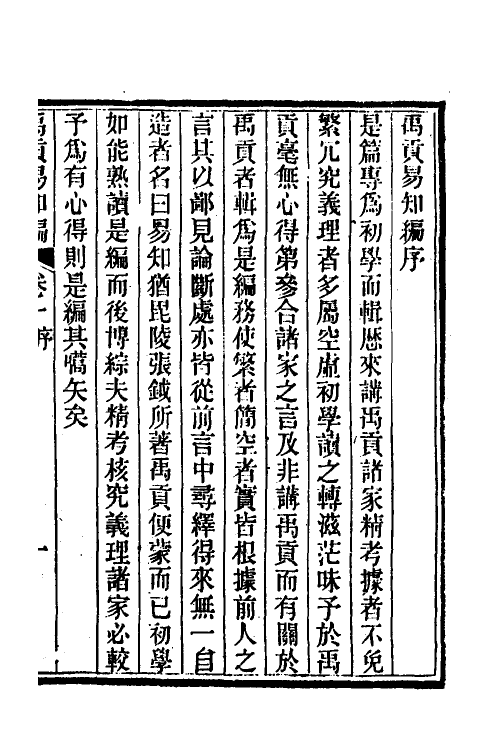 禹貢易知編序
是篇專爲初學而輯歷來講禹貢諸家精考據者不免
繁冗究義理者多屬空虛初學讀之轉滋茫昧予於禹
貢毫無心得第參合諸家之言及非講禹貢而有關於
禹貢者輯爲是編務使繁者簡空者實皆根據前人之
言其以鄙見論斷處亦皆從前言中尋繹得來無一自
造者名曰易知猶毘陵張鉞所著禹貢便蒙而已初學
如能熟讀是編而後博綜夫精考核究義理諸家必較
予爲有心得則是編其嚆矢矣
禹貢易知編 卷 序 一